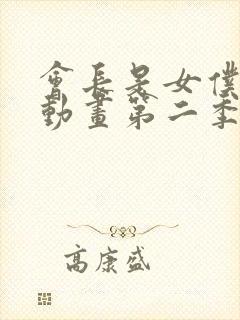 會長是女僕
動畫第二季
高康盛